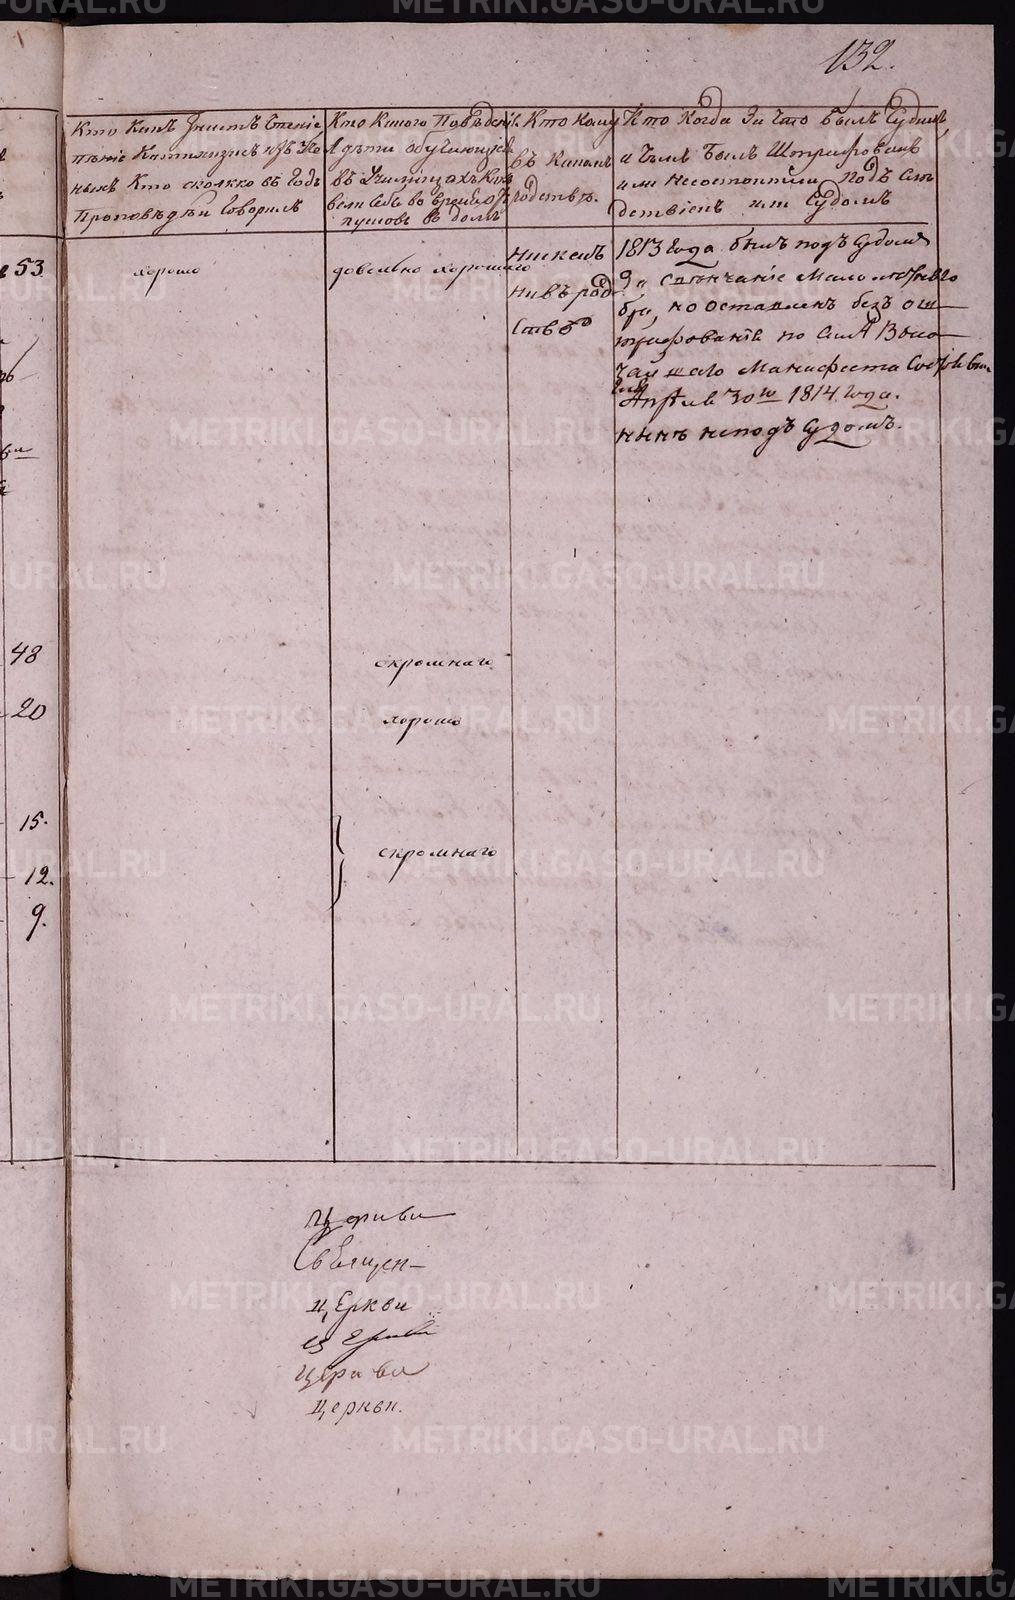 132.
Кто Какъ Знаетъ Чтеніе
пѣніе Катихизисъ и изъ Уче
ныхъ Кто сколько въ Годъ
Проповѣдей Говорилъ
Кто Какого Поведенія
дѣти обучающіяся
въ Училищахъ Как
вели себя во время от
пусковъ въ домъ
Кто Кому
въ Какомъ
родствѣ.
Кто Когда За Что Былъ Судимъ,
и Чѣмъ Былъ Штрафованъ
или несостоитъ ли подъ Слѣ
дствіемъ или Судомъ
53
хорошо
довольно хорошаго
ни съ кемъ
ни въ род
ствѣ
1813 года былъ подъ судомъ
за вѣнчаніе мало
но оставленъ безъ ош
трафованія по силѣ Высо
чайшаго Манифеста
Апреля 30го 1814 года.
нынѣ не подъ судомъ.
48
скромнаго
20
хорошо
15.
скромнаго
12.
9.
Церкви
Священ
церкви
церкви
церкви
церкви.
METRIKI.GASO-URAL.RU